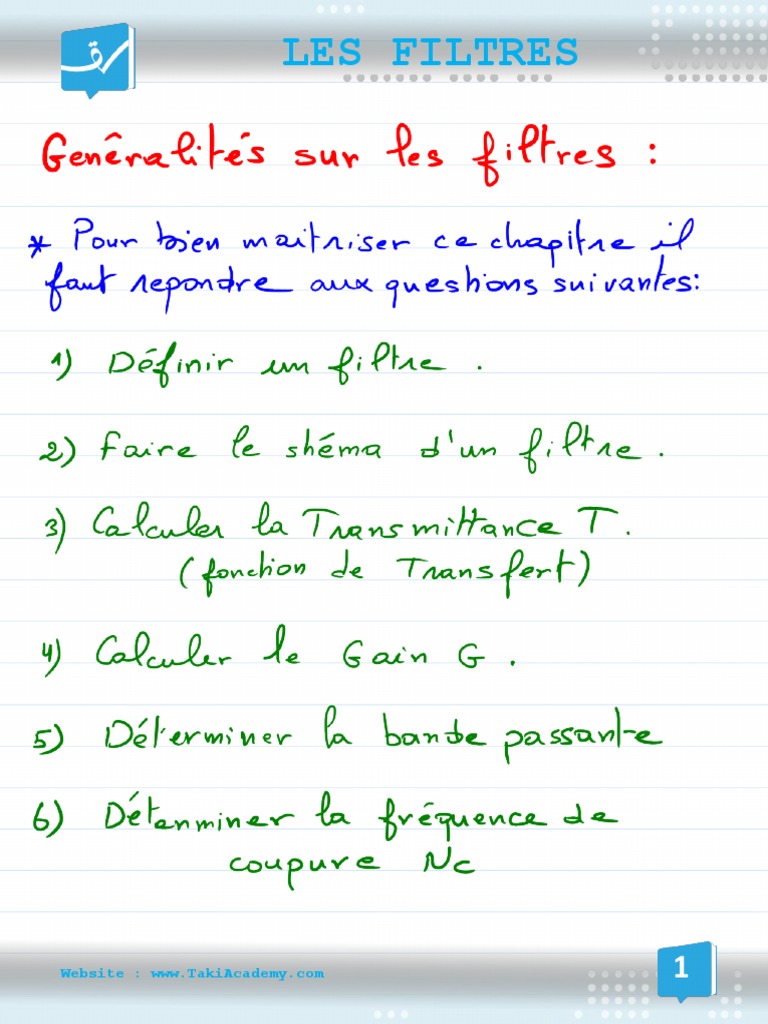 LES FILTRES
Genêralités sur les filtres :
* Pour bien maitriser ce chapitre il
faut repondre aux questions suivantes:
1) Définir un filtre .
2) faire le shéma d'un filtre .
3) Calculer la Transmittance T .
(fonction de Transfert)
4) Calculer le Gain G .
5) Déterminer la bande passante
6) Déterminer la fréquence de
coupure Nc
Website : www.TakiAcademy.com
1